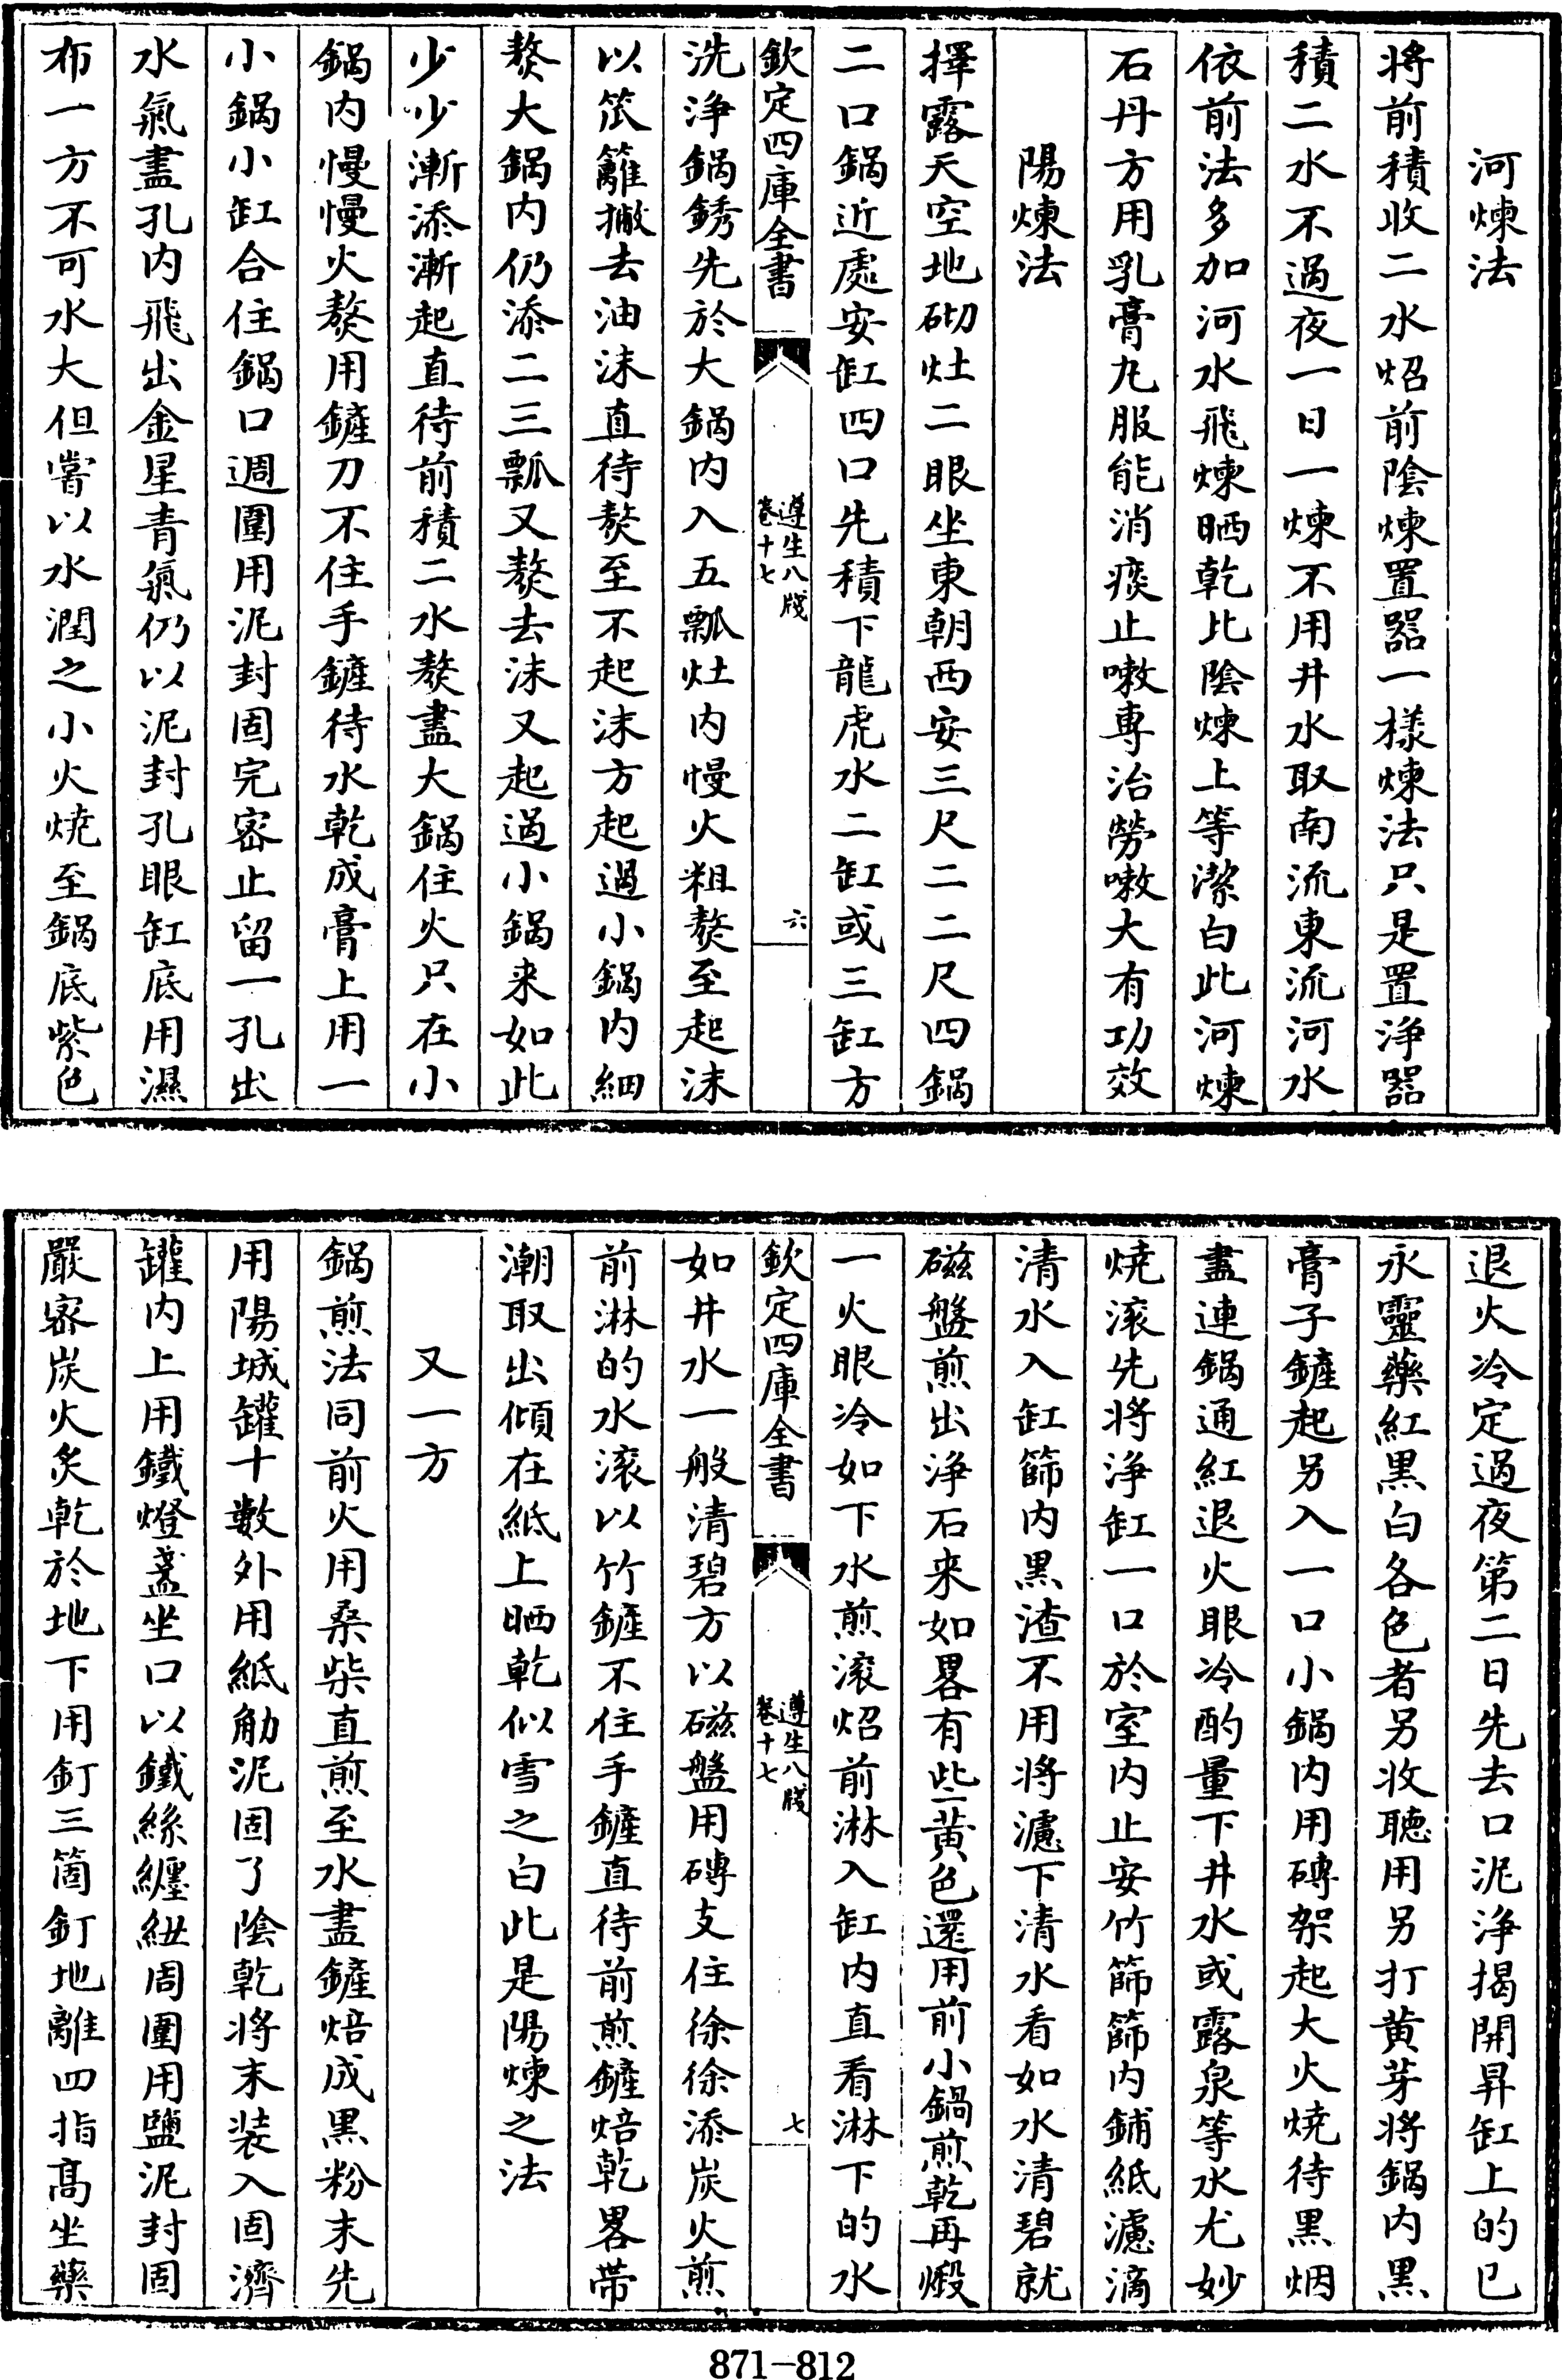 河煉法
將前積收二水炤前陰煉置器一様煉法只是置浄器
積二水不過夜一日一煉不用井水取南流東流河水
依前法多加河水飛煉晒乾比陰煉上等潔白此河煉
石丹方用乳膏九服能消痰止嗽專治勞嗽大有功效
陽煉法
擇露天空地砌灶二眼坐東朝西安三尺二二尺四鍋
二口鍋近處安缸四口先積下龍虎水二缸或三缸方
欽定四庫全書
遵生八牋
卷十七
六
洗浄鍋銹先於大鍋内入五瓢灶内慢火粗熬至起沫
以笊籬撇去油沫直待熬至不起沫方起過小鍋内細
熬大鍋内仍添二三瓢又熬去沫又起過小鍋来如此
少少漸添漸起直待前積二水熬盡大鍋住火只在小
鍋内慢慢火熬用鏟刀不住手鏟待水乾成膏上用一
小鍋小缸合住鍋口週圍用泥封固完宻止留一孔出
水氣盡孔内飛出金星青氣仍以泥封孔眼缸底用濕
布一方不可水大但嘗以水潤之小火焼至鍋底紫色
退火冷定過夜第二日先去口泥浄揭開昇缸上的已
永靈藥紅黒白各色者另收聽用另打黄芽將鍋内黒
膏子鏟起另入一口小鍋内用磚架起大火焼待黒烟
盡連鍋通紅退火眼冷酌量下井水或露泉等水尤妙
焼滚先將浄缸一口於室内止安竹篩篩内鋪紙濾滴
清水入缸篩内黒渣不用將濾下清水看如水清碧就
磁盤煎出浄石来如畧有些黄色還用前小鍋煎乾再煅
一火眼冷如下水煎滚炤前淋入缸内直看淋下的水
欽定四庫全書
遵生八牋
卷十七
七
如井水一般清碧方以磁盤用磚支住徐徐添炭火煎
前淋的水滚以竹鏟不住手鏟直待前煎鏟焙乾畧帶
潮取出傾在紙上晒乾似雪之白此是陽煉之法
又一方
鍋煎法同前火用桑柴直煎至水盡鏟焙成黒粉末先
用陽城罐十數外用紙觔泥固了陰乾將末装入固濟
罐内上用鐵燈盞坐口以鐵絲纒紐周圍用鹽泥封固
嚴宻炭火炙乾於地下用釘三箇釘地離四指髙坐藥
871-812